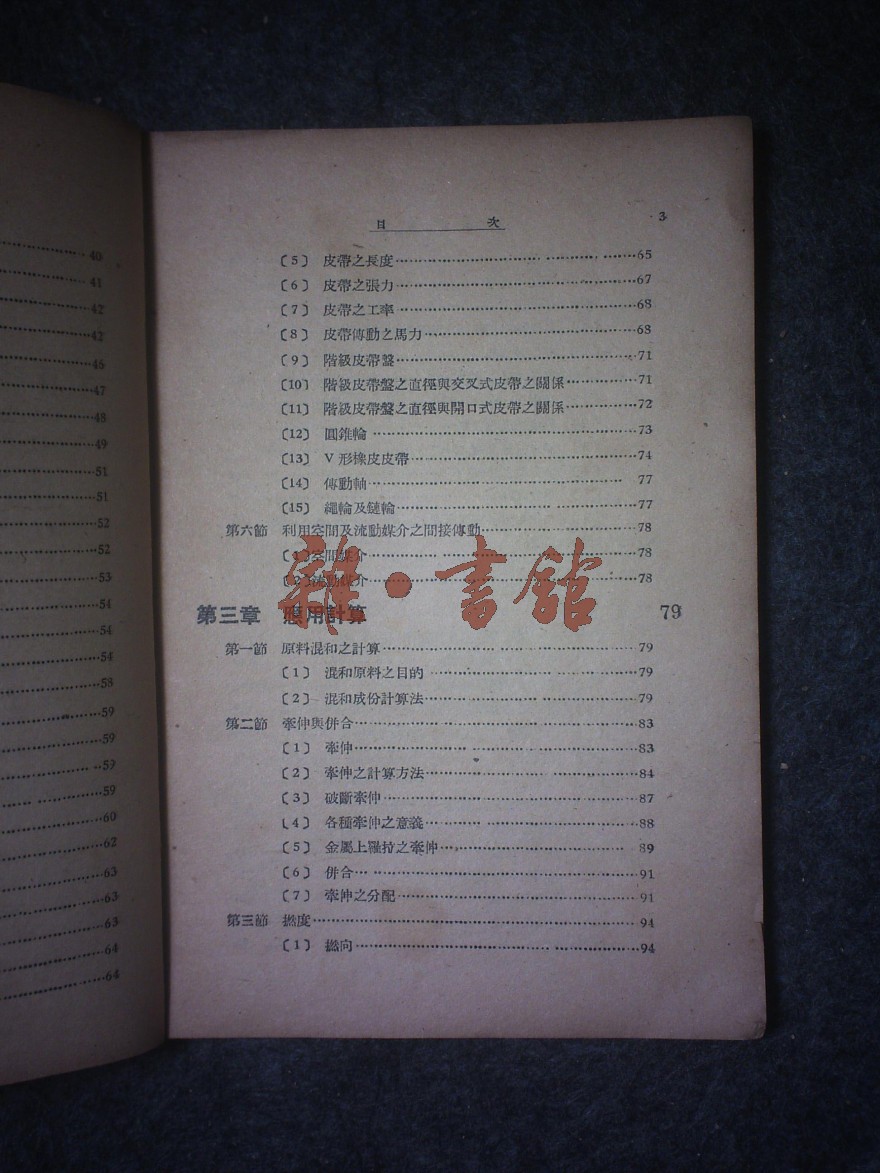 40
41
42
42
46
47
48
49
51
51
52
52
53
54
54
54
58
59
59
59
59
60
62
63
63
63
64
64
目 次 3
〔5〕 皮帶之長度 65
〔6〕 皮帶之張力 67
〔7〕 皮帶之工率 68
〔8〕 皮帶傳動之馬力 68
〔9〕 階級皮帶盤 71
〔10〕 階級皮帶盤之直徑與交叉式皮帶之關係 71
〔11〕 階級皮帶盤之直徑與開口式皮帶之關係 72
〔12〕 圓錐輪 73
〔13〕 V 形橡皮皮帶 74
〔14〕 傳動軸 77
〔15〕 繩輪及鏈輪 77
第六節 利用空間及流動媒介之間接傳動 78
〔1〕 空間媒介 78
〔2〕 流動媒介 78
雜·書館
第三章 應用計算 79
第一節 原料混和之計算 79
〔1〕 混和原料之目的 79
〔2〕 混和成份計算法 79
第二節 牽伸與併合 83
〔1〕 牽伸 83
〔2〕 牽伸之計算方法 84
〔3〕 破斷牽伸 87
〔4〕 各種牽伸之意義 88
〔5〕 金屬上羅拉之牽伸 89
〔6〕 併合 91
〔7〕 牽伸之分配 91
第三節 撚度 94
〔1〕 撚向 94